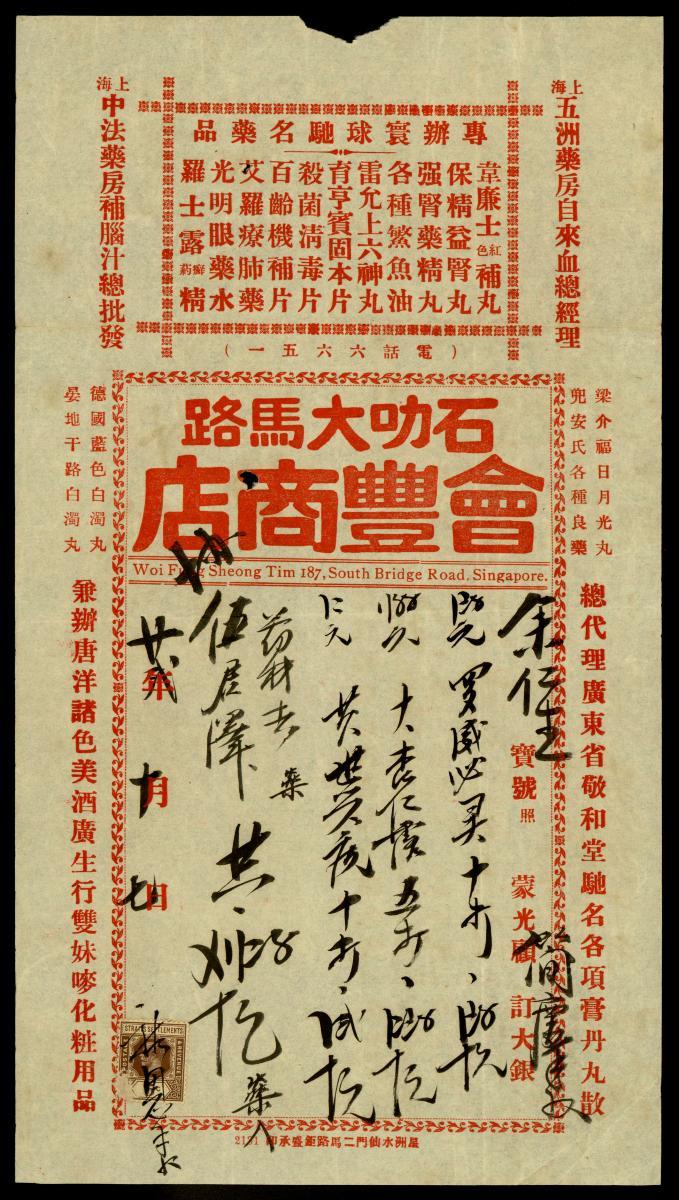 上海五洲藥房自來血總經理
專辦寰球馳名藥品
韋廉士紅色補丸
保精益腎丸
强腎藥精丸
各種鰵魚油
雷允上六神丸
育亨賓固本片
殺菌清毒片
百齡機補片
艾羅療肺藥
光明眼藥水
羅士露癬药精
上海中法藥房補腦汁總批發
(電話六六五一)
梁介福日月光丸
兜安氏各種良藥
總代理廣東省敬和堂馳名各項膏丹丸散
石叻大馬路
會豐商店
Woi Fung Sheong Tim 187, South Bridge Road, Singapore.
余仁生寶號照
蒙光顧
訂大銀
十打
五打
十打
伍君澤
共
年十月七日
德國藍色白濁丸
晏地干路白濁丸
兼辦唐洋諸色美酒廣生行雙妹嘜化粧用品
STRAITS SETTLEMENTS
REVENUE
星洲水仙門二馬路鉅盛承印 2131